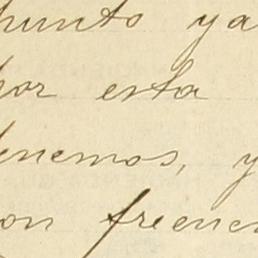 punto ya
por esta
tenemos, y
con frecuen